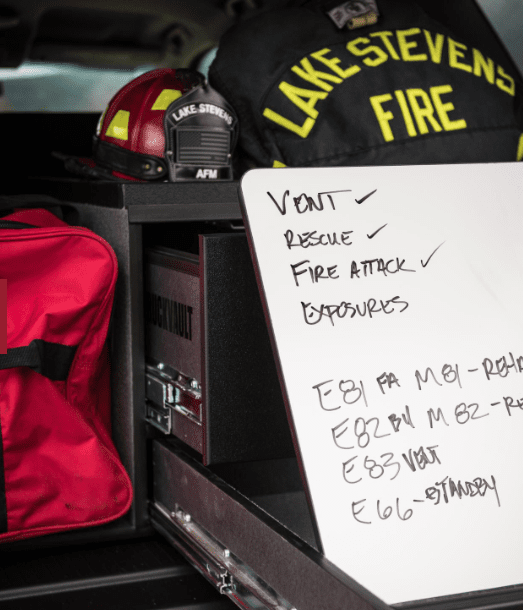 LAKE STEVENS
FIRE
LAKE STEVENS
AFM
VENT ✓
RESCUE ✓
FIRE ATTACK ✓
EXPOSURES
E81 FA M81-REHA
E82 M82-RE
E83 VENT
E66-STANDBY